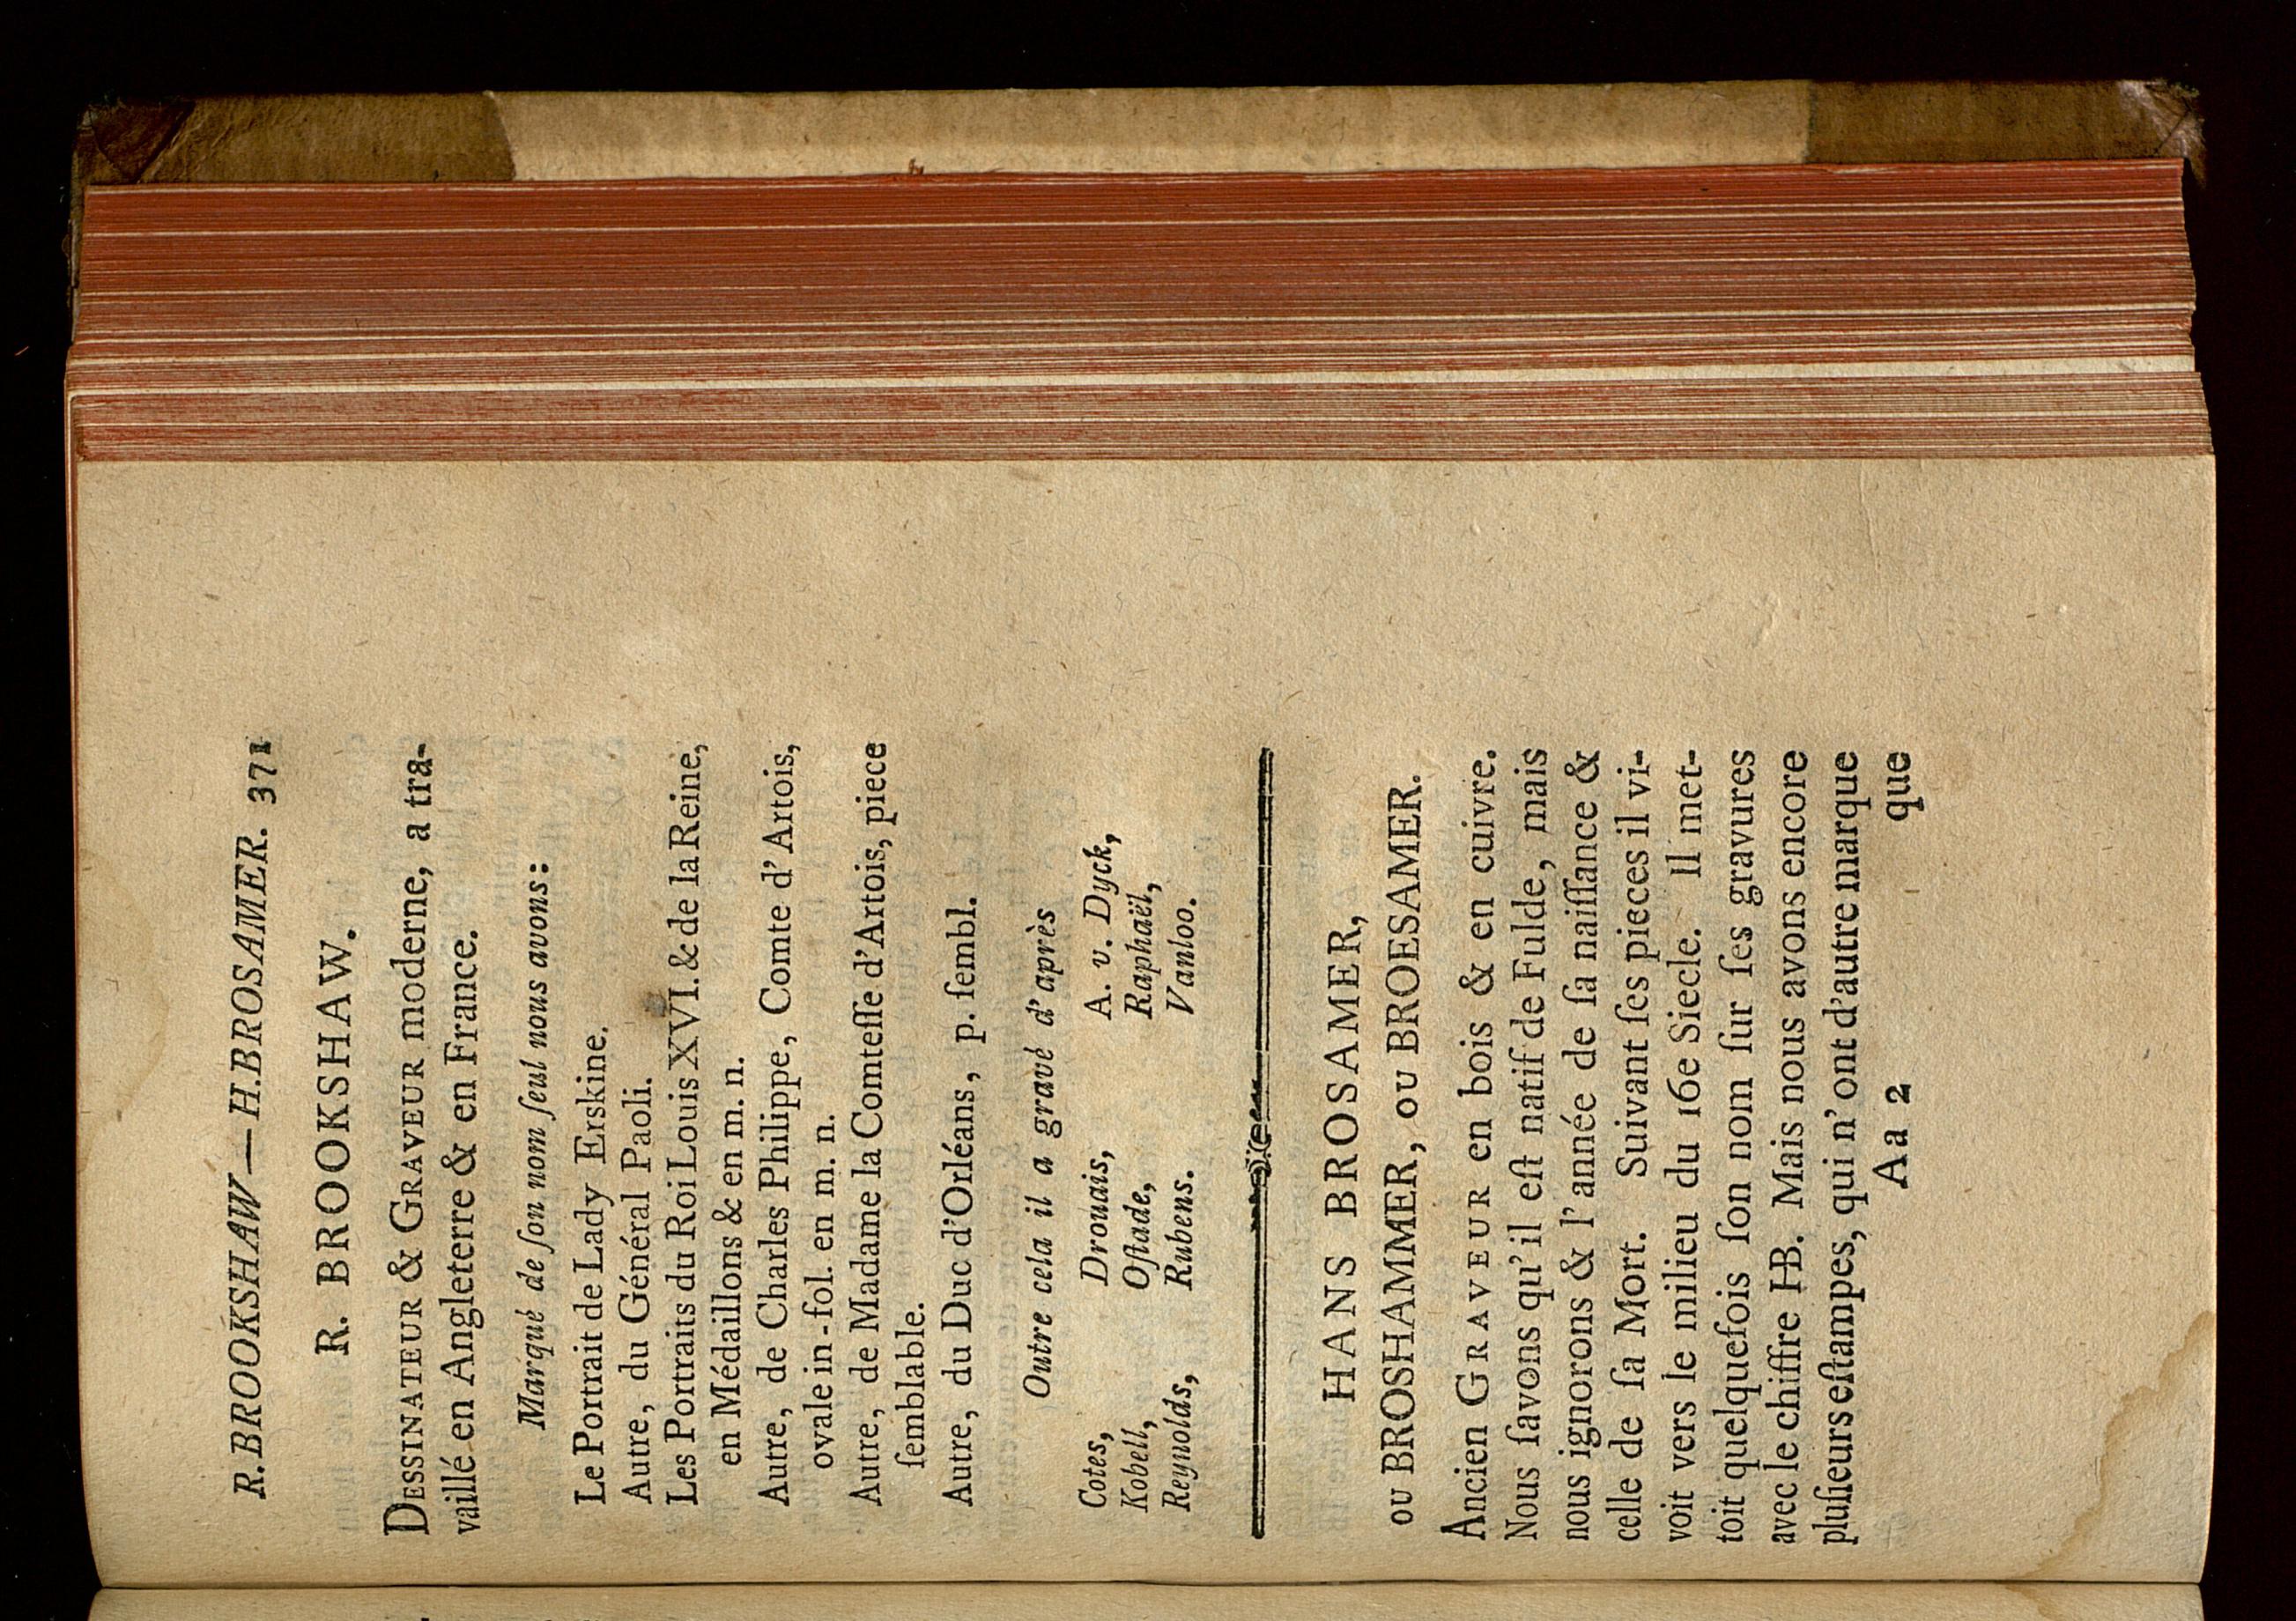 R. BROOKSHAW — H. BROSAMER. 371
R. BROOKSHAW.
DESSINATEUR & GRAVEUR moderne, a tra-
vaillé en Angleterre & en France.
Marqué de ſon nom ſeul nous avons:
Le Portrait de Lady Erskine.
Autre, du Général Paoli.
Les Portraits du Roi Louis XVI. & de la Reine,
en Médaillons & en m. n.
Autre, de Charles Philippe, Comte d'Artois,
ovale in-fol. en m. n.
Autre, de Madame la Comteſſe d'Artois, piece
ſemblable.
Autre, du Duc d'Orléans, p. ſembl.
Outre cela il a gravé d'après
Cotes, Drouais, A. v. Dyck,
Kobell, Oſtade, Raphaël,
Reynolds, Rubens. Vanloo.
HANS BROSAMER,
OU BROSHAMMER, OU BROESAMER.
Ancien GRAVEUR en bois & en cuivre.
Nous ſavons qu'il eſt natif de Fulde, mais
nous ignorons & l'année de ſa naiſſance &
celle de ſa Mort. Suivant ſes pieces il vi-
voit vers le milieu du 16e Siecle. Il met-
toit quelquefois ſon nom ſur ſes gravures
avec le chiffre HB. Mais nous avons encore
pluſieurs eſtampes, qui n'ont d'autre marque
Aa 2 que